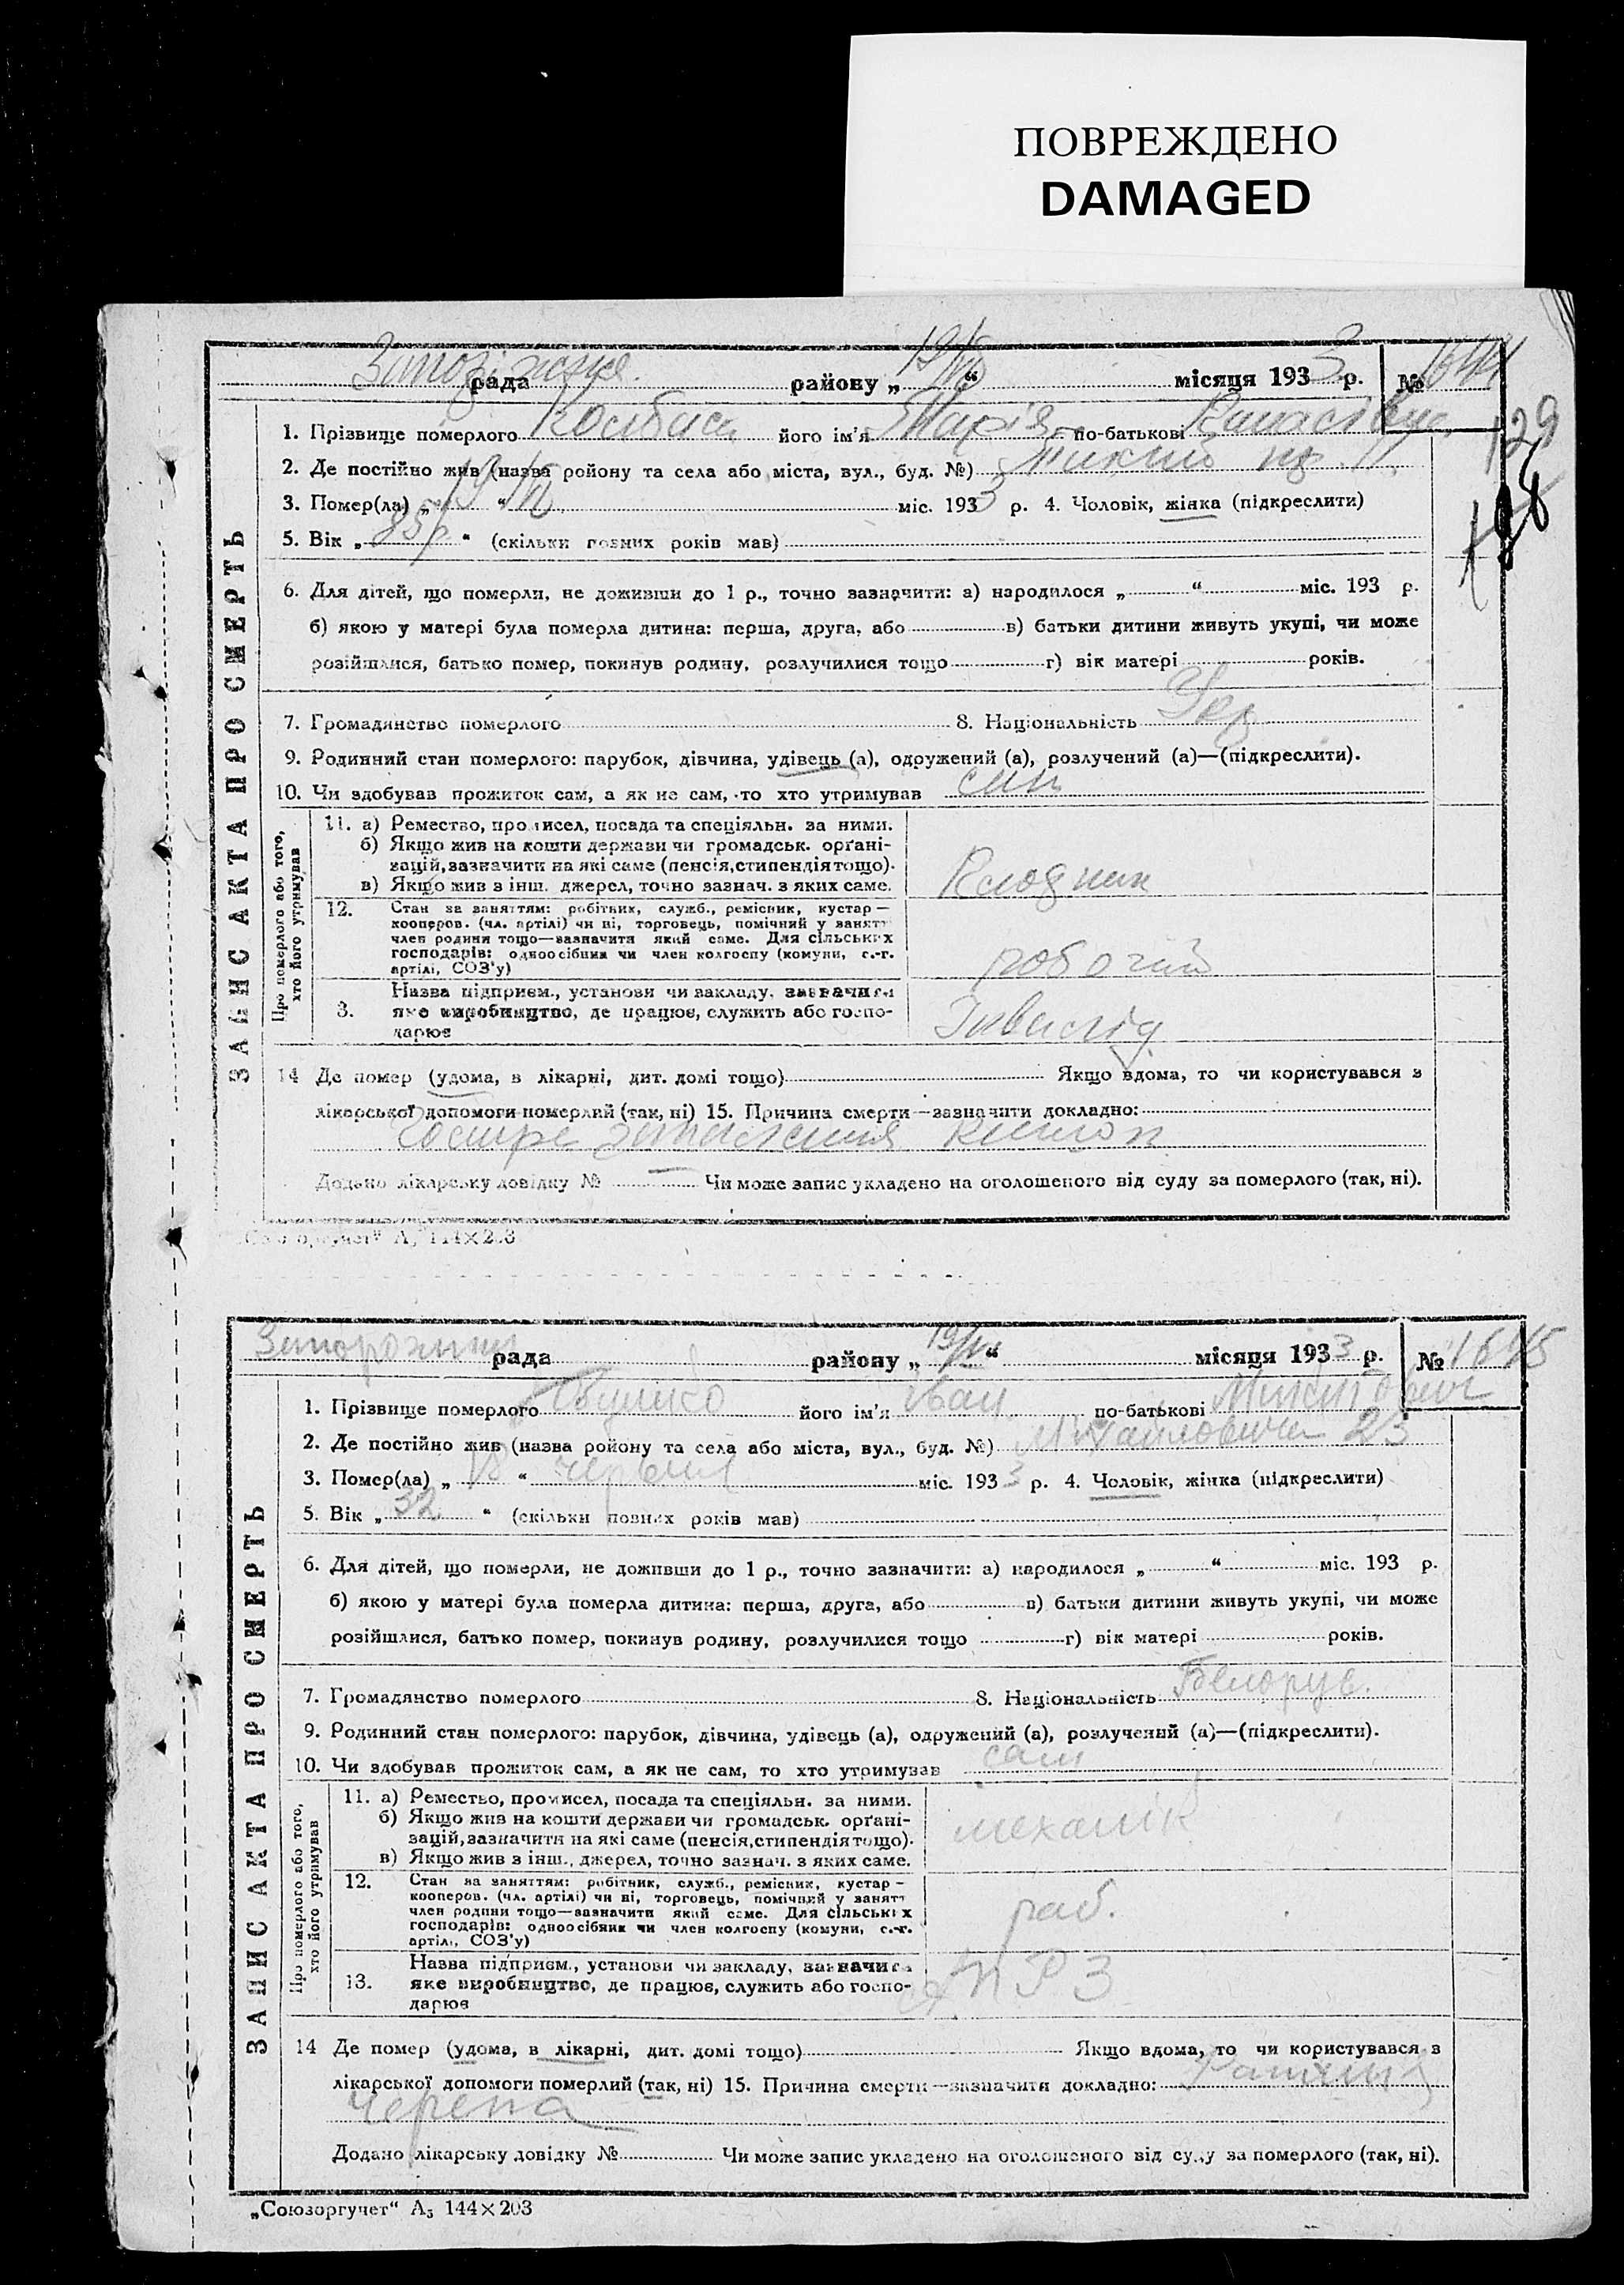 ПОВРЕЖДЕНО
DAMAGED
ЗАПИС АКТА ПРО СМЕРТЬ
рада району „ 19/VI “ місяця 1933 р. № 1644
129
128
1. Прізвище померлого його ім'я Марія по-батькові
2. Де постійно жив (назва ройону та села або міста, вул., буд. №)
3. Помер(ла) „ 19/VI “ міс. 1933 р. 4. Чоловік, жінка (підкреслити)
5. Вік „ 85р “ (скільки повних років мав)
6. Для дітей, що померли, не доживши до 1 р., точно зазначити: а) народилося „ “ міс. 193 р.
б) якою у матері була померла дитина: перша, друга, або в) батьки дитини живуть укупі, чи може
розійшлися, батько помер, покинув родину, розлучилися тощо г) вік матері років.
7. Громадянство померлого 8. Національність
9. Родинний стан померлого: парубок, дівчина, удівець (а), одружений (а), розлучений (а)—(підкреслити).
10. Чи здобував прожиток сам, а як не сам, то хто утримував син
Про померлого або того, хто його утримував
11. а) Ремество, промисел, посада та спеціяльн. за ними.
б) Якщо жив на кошти держави чи громадськ. орґані-
зацій, зазначити на які саме (пенсія, стипендія тощо).
в) Якщо жив з інш. джерел, точно зазнач. з яких саме.
12. Стан за заняттям: робітник, служб., ремісник, кустар—
кооперов. (чл. артілі) чи ні, торговець, помічний у занятт
член родини тощо—зазначити який саме. Для сільських
господарів: одноосібник чи член колгоспу (комуни, с.-г.
артілі, СОЗ'у)
робочий
Назва підприєм., установи чи закладу, зазначити
3. яке виробництво, де працює, служить або госпо-
дарює
Інвалід
14 Де помер (удома, в лікарні, дит. домі тощо) Якщо вдома, то чи користувався з
лікарської допомоги померлий (так, ні) 15. Причина смерти—зазначити докладно:
запалення кишок
Додано лікарську довідку № — Чи може запис укладено на оголошеного від суду за померлого (так, ні).
„Союзоргучет“ А5 144×203
ЗАПИС АКТА ПРО СМЕРТЬ
рада району „ 19/VI “ місяця 1933 р. № 1645
1. Прізвище померлого його ім'я Іван по-батькові
2. Де постійно жив (назва ройону та села або міста, вул., буд. №) 23
3. Помер(ла) „ 18 “ червня міс. 1933 р. 4. Чоловік, жінка (підкреслити)
5. Вік „ 32 “ (скільки повних років мав)
6. Для дітей, що померли, не доживши до 1 р., точно зазначити: а) народилося „ “ міс. 193 р.
б) якою у матері була померла дитина: перша, друга, або в) батьки дитини живуть укупі, чи може
розійшлися, батько помер, покинув родину, розлучилися тощо г) вік матері років.
7. Громадянство померлого 8. Національність Белорус.
9. Родинний стан померлого: парубок, дівчина, удівець (а), одружений (а), розлучений (а)—(підкреслити).
10. Чи здобував прожиток сам, а як не сам, то хто утримував сам
Про померлого або того, хто його утримував
11. а) Ремество, промисел, посада та спеціяльн. за ними.
б) Якщо жив на кошти держави чи громадськ. орґані-
зацій, зазначити на які саме (пенсія, стипендія тощо).
в) Якщо жив з інш. джерел, точно зазнач. з яких саме.
механік
12. Стан за заняттям: робітник, служб., ремісник, кустар—
кооперов. (чл. артілі) чи ні, торговець, помічний у занятт
член родини тощо—зазначити який саме. Для сільських
господарів: одноосібник чи член колгоспу (комуни, с.-г.
артілі, СОЗ'у)
раб.
Назва підприєм., установи чи закладу, зазначити
13. яке виробництво, де працює, служить або госпо-
дарює
ПРЗ
14 Де помер (удома, в лікарні, дит. домі тощо) Якщо вдома, то чи користувався з
лікарської допомоги померлий (так, ні) 15. Причина смерти—зазначити докладно:
черепа
Додано лікарську довідку № Чи може запис укладено на оголошеного від суду за померлого (так, ні).
„Союзоргучет“ А5 144×203